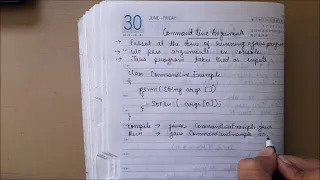 30 JUNE FRIDAY
Command Line Arguments
- Passed at the time of running = java program
→ We pass arguments in console.
→ Java program takes that as input.
class CommandLineExample
{
psvm (String args [])
{
sopln ( args [0]);
}
}
Compile → javac CommandLineExample.java
Run → java CommandLineExample